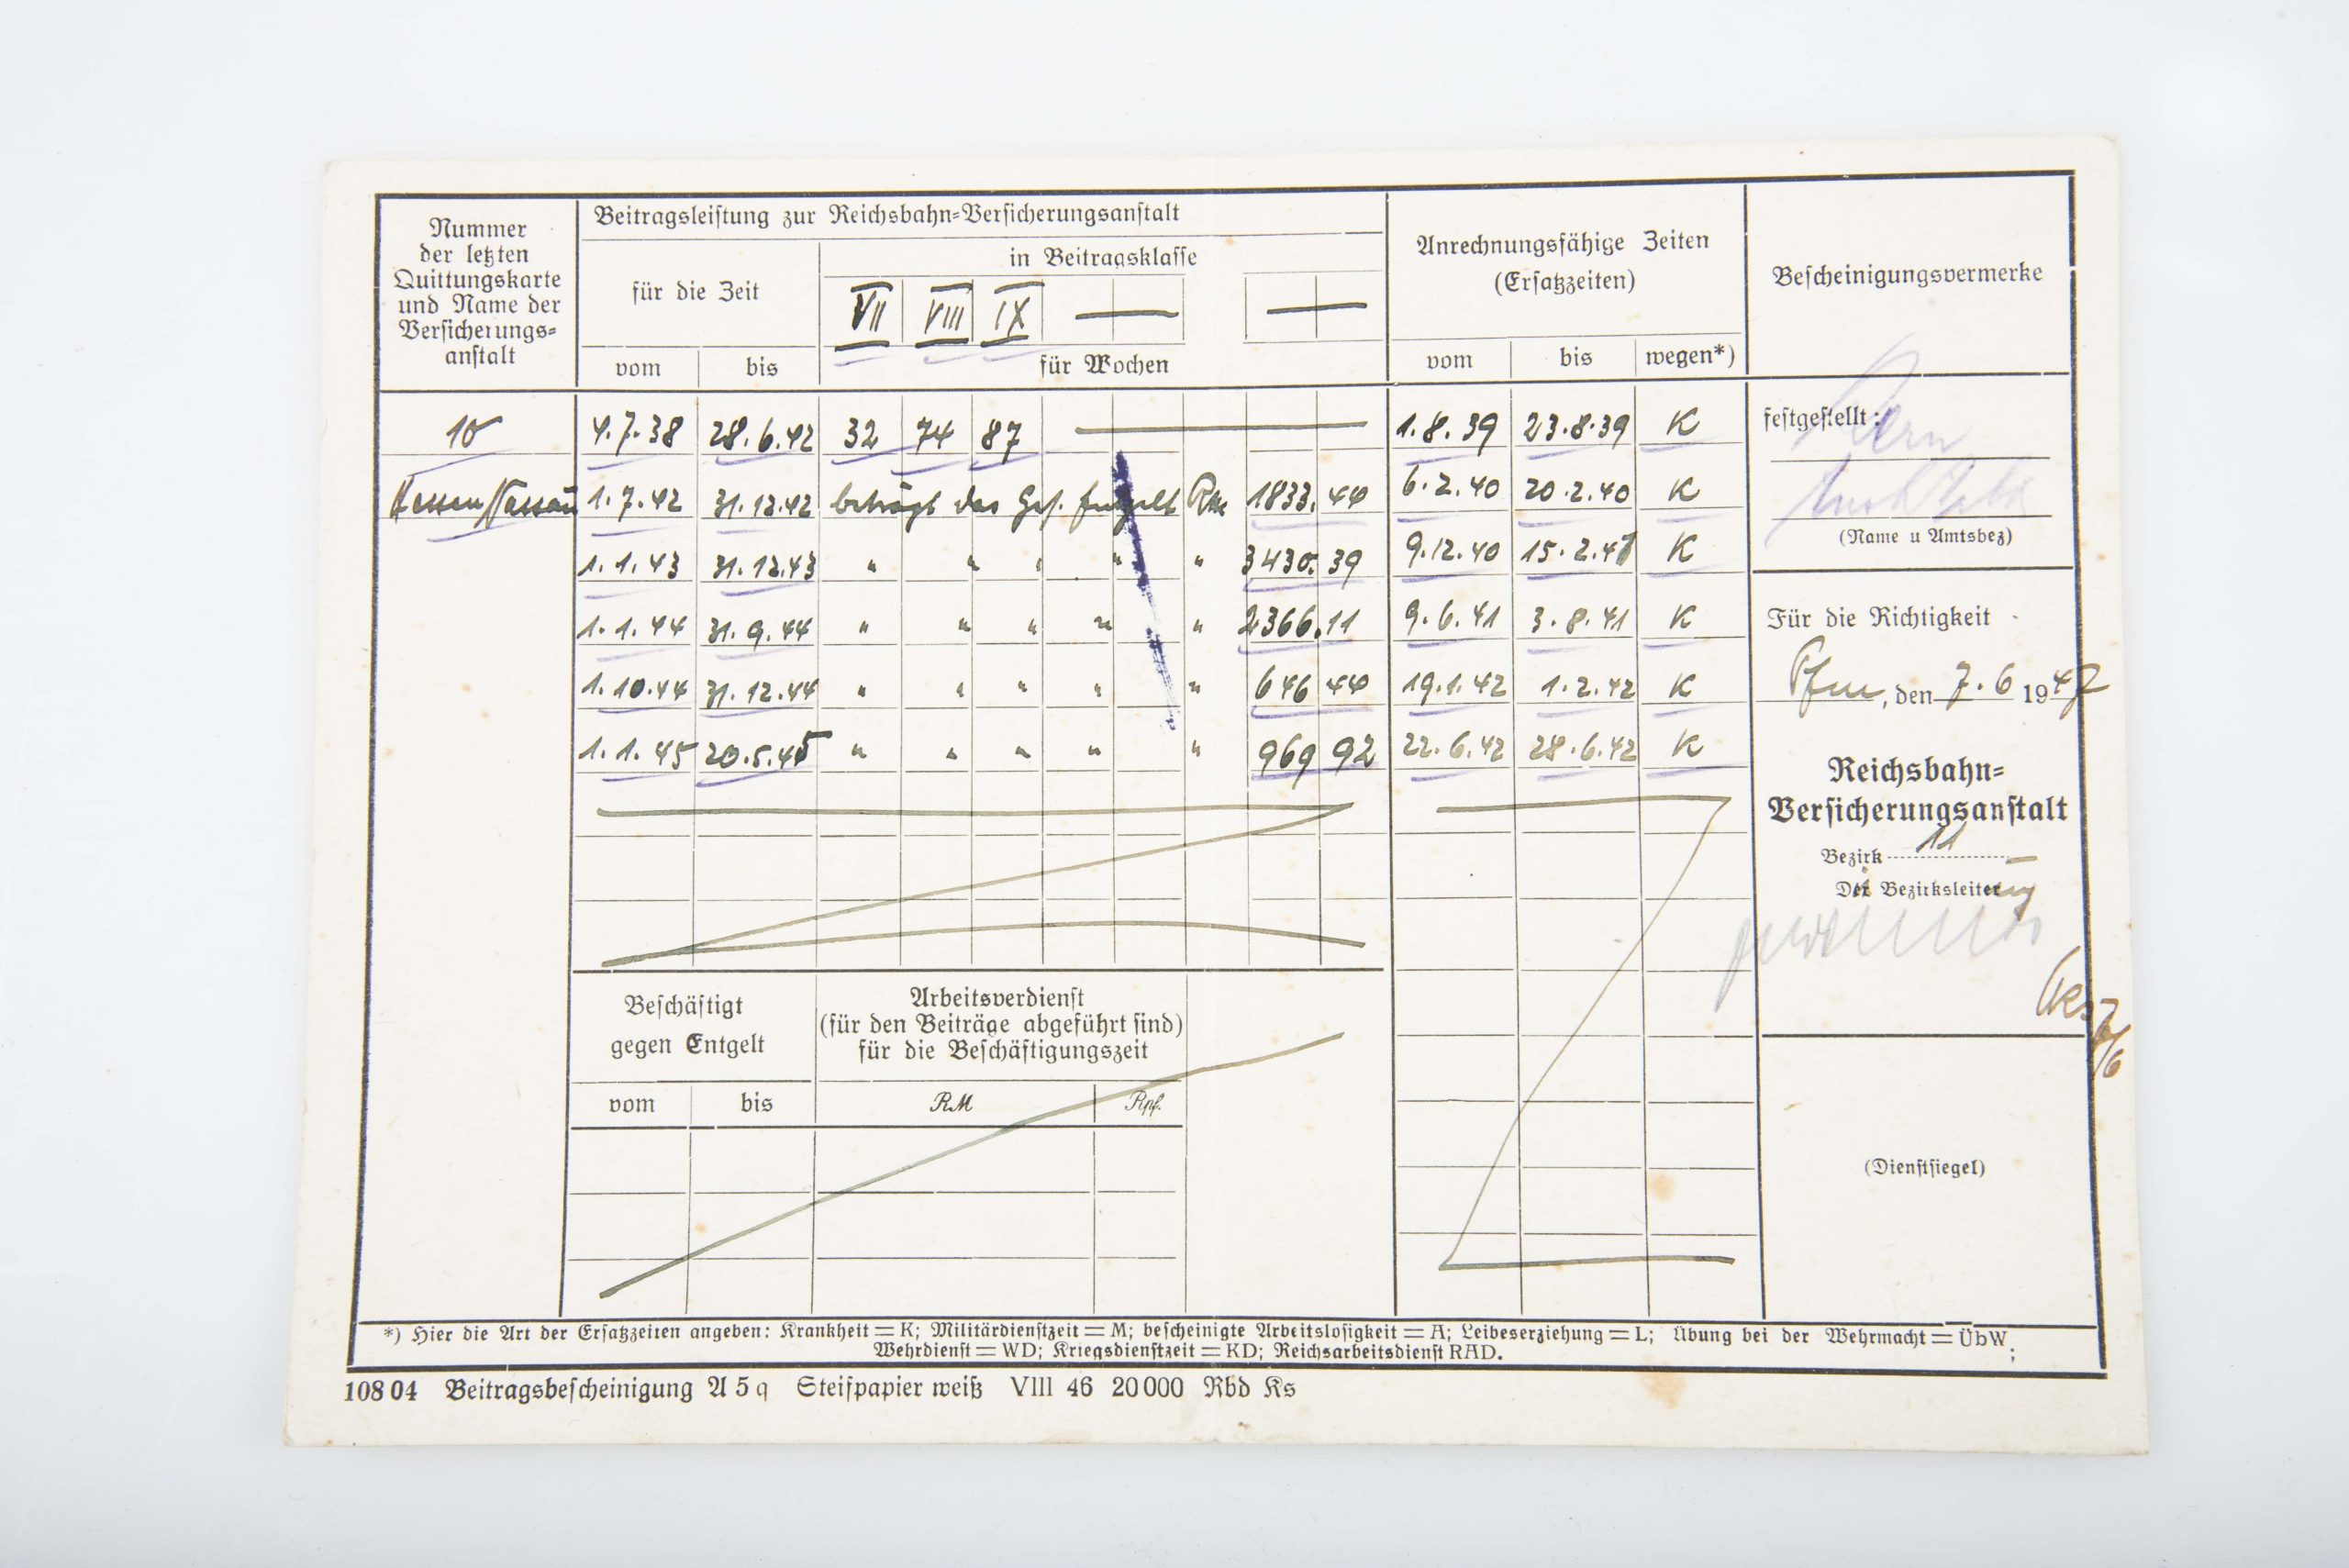 Nummer
der letzten
Quittungskarte
und Name der
Versicherungs=
anstalt
Beitragsleistung zur Reichsbahn=Versicherungsanstalt
für die Zeit
in Beitragsklasse
VII VIII IX — —
vom bis für Wochen
Anrechnungsfähige Zeiten
(Ersatzzeiten)
vom bis wegen*)
Bescheinigungsvermerke
10 4.7.38 28.6.42 32 74 87 — 1.8.39 23.8.39 K
Hessen/Nassau 1.7.42 31.12.42 beträgt das 1833.44 6.2.40 20.2.40 K
1.1.43 31.12.43 " " " " " 3430.39 9.12.40 15.2.41 K
1.1.44 31.9.44 " " " " " 2366.11 9.6.41 3.8.41 K
1.10.44 31.12.44 " " " " " 646 44 19.1.42 1.2.42 K
1.1.45 20.5.45 " " " " " 969 92 22.6.42 28.6.42 K
festgestellt:
(Name u Amtsbez)
Für die Richtigkeit
Ffm, den 7.6 1947
Reichsbahn=
Versicherungsanstalt
Bezirk 11
Die Bezirksleitung
(Dienstsiegel)
Beschäftigt
gegen Entgelt
Arbeitsverdienst
(für den Beiträge abgeführt sind)
für die Beschäftigungszeit
vom bis RM Rpf.
*) Hier die Art der Ersatzzeiten angeben: Krankheit = K; Militärdienstzeit = M; bescheinigte Arbeitslosigkeit = A; Leibeserziehung = L; Übung bei der Wehrmacht = ÜbW;
Wehrdienst = WD; Kriegsdienstzeit = KD; Reichsarbeitsdienst RAD.
108 04 Beitragsbescheinigung A 5 q Steifpapier weiß VIII 46 20 000 Rbd Ks